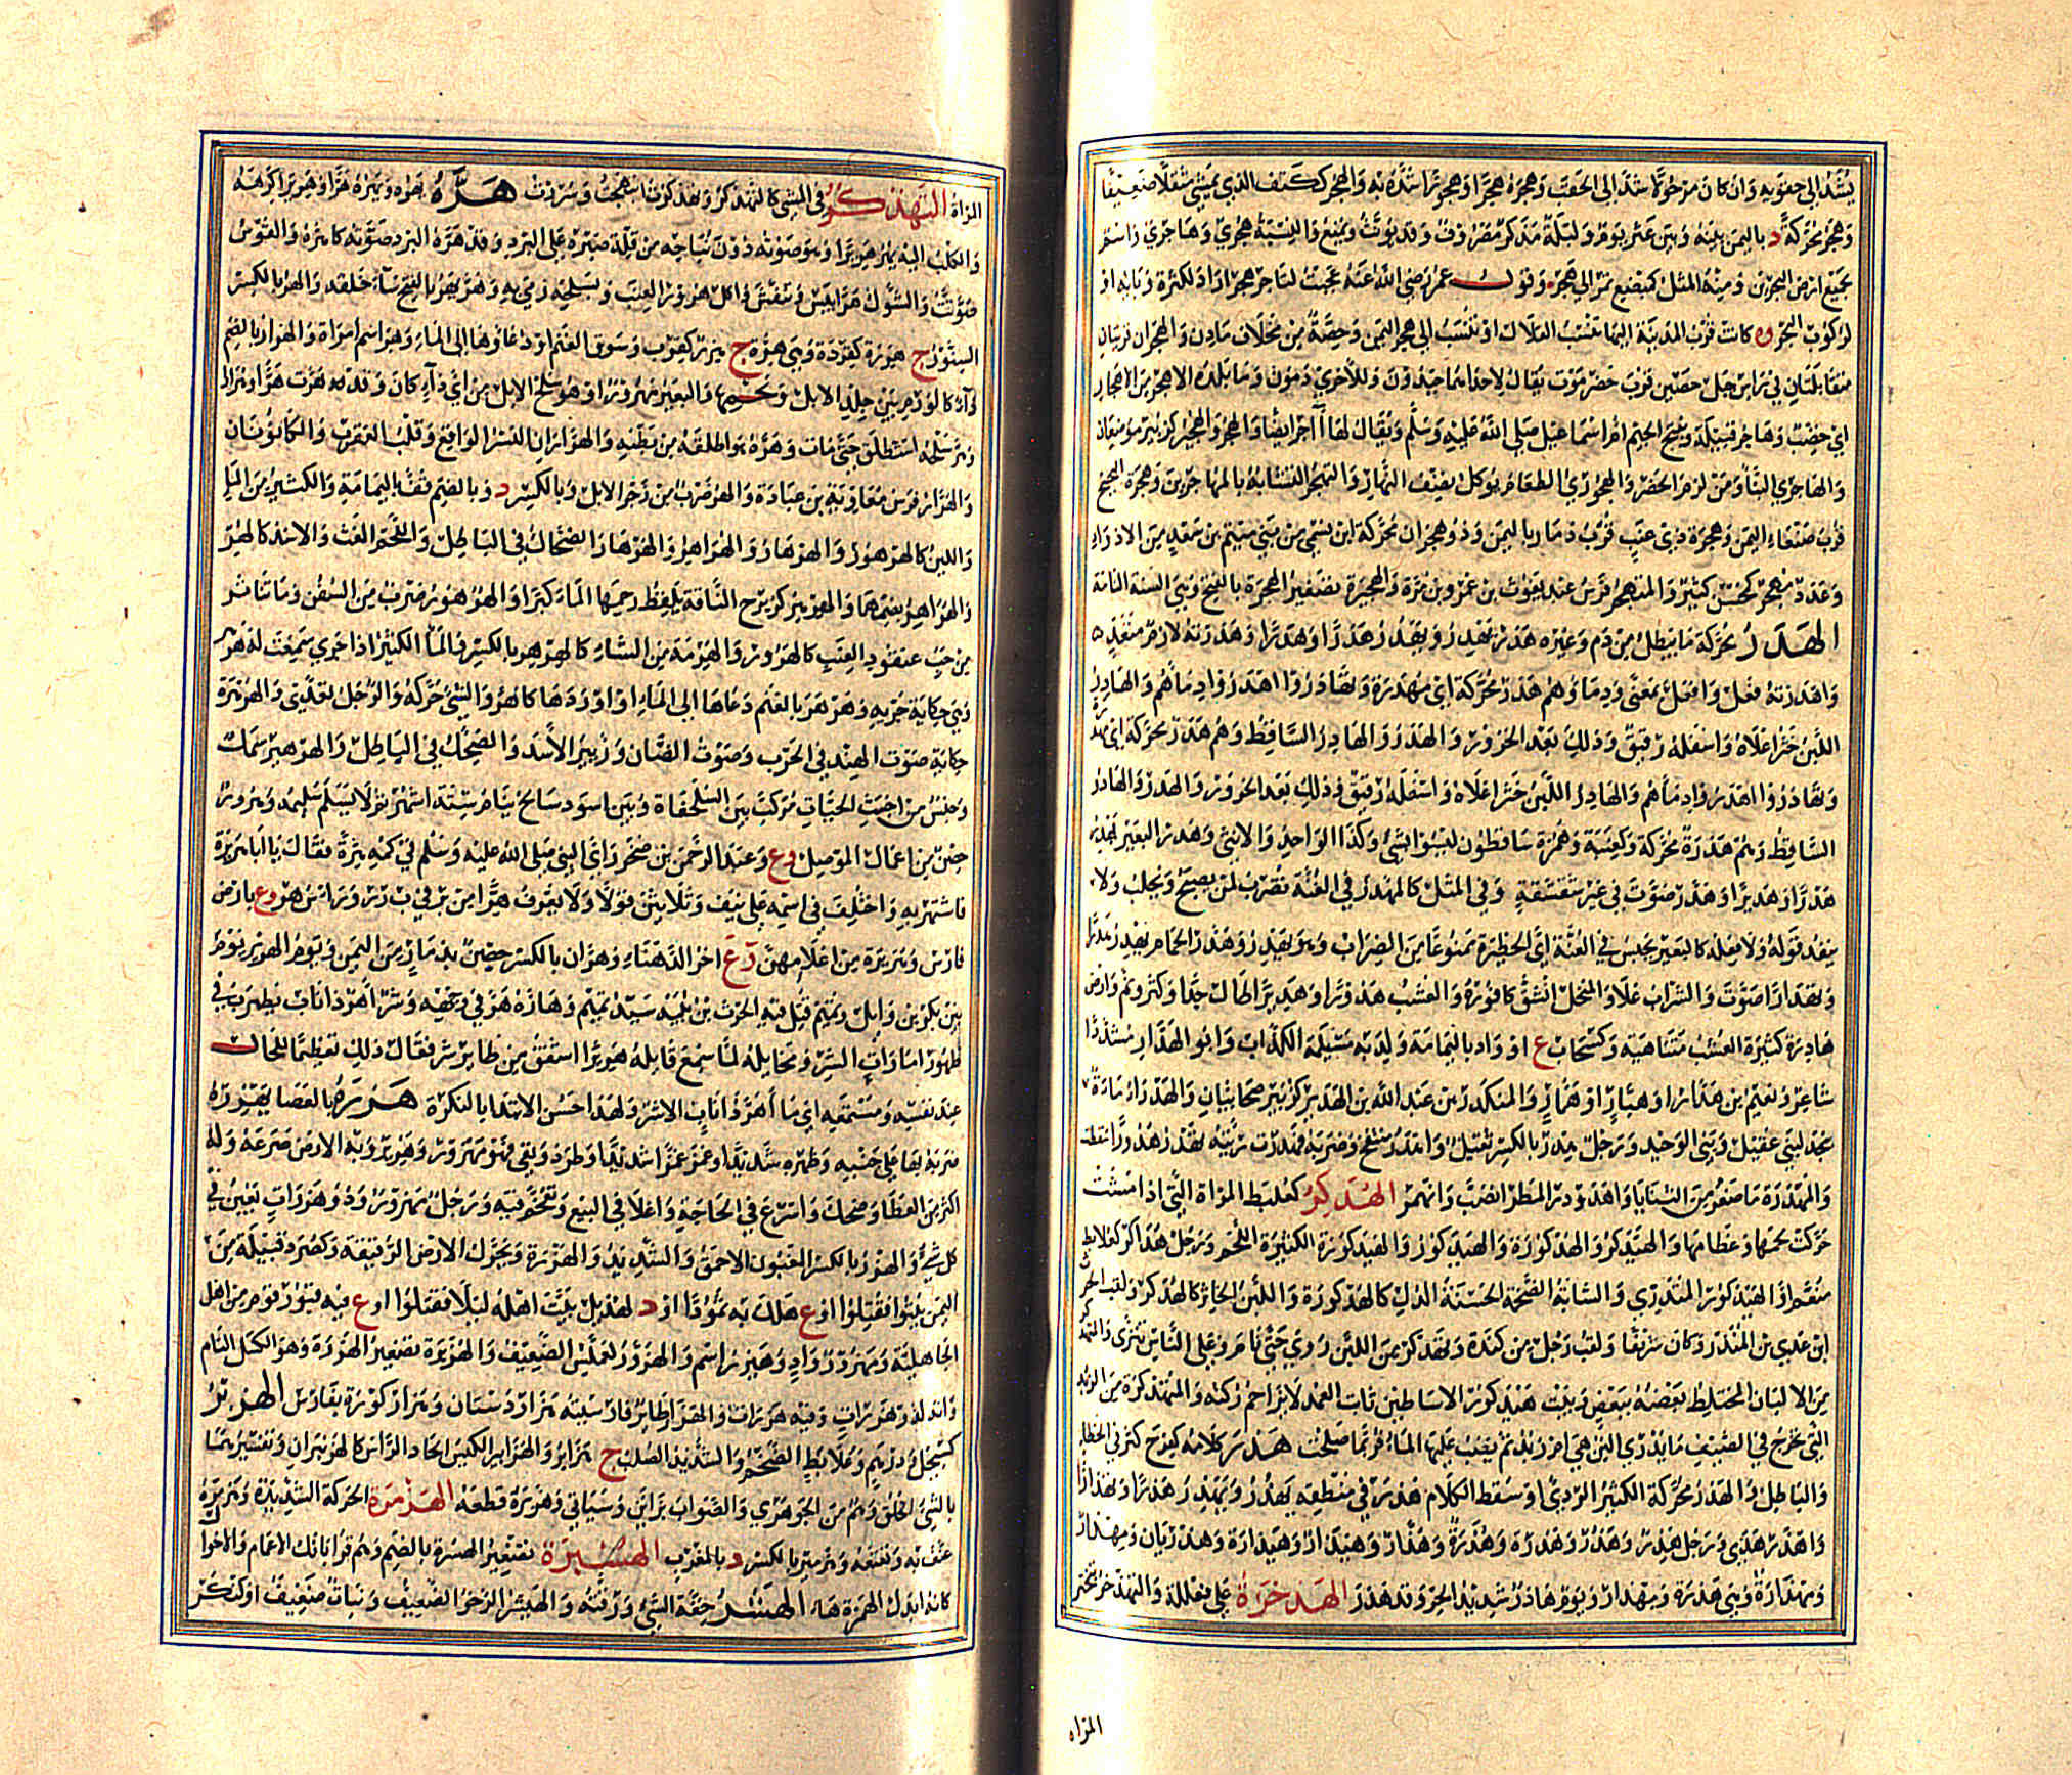 يشد إلى حقويه وان كان مرحولا شد الى الحقب وهجره هجرا وهجورا شده به والهجر ككتف الذي يمشي مثقلا ضعيفا
وهجر محركة د باليمن بينه وبين عثر يوم وليلة مذكر مصروف وقد يؤنث ويمنع والنسبة هجري وهاجري واسم
لجميع ارض البحرين ومنه المثل كمبضع تمر الى هجر وقول عمر رضي الله عنه عجبت لتاجر هجر اراد لكثرة وبائه او
لركوب البحر و ه كانت قرب المدينة اليها تنسب القلال او تنسب الى هجر اليمن وحصة من مخلاف مازن والهجران قريتان
متقابلتان في راس جبل حصين قرب حضرموت يقال لاحداهما خيدون وللأخرى دمون وما بلده الا هجر من الاهجار
اي خصب وهاجر قبيلة وبفتح الجيم ام اسماعيل صلى الله عليه وسلم ويقال لها آجر ايضا والهجر والهجير كزبير موضعان
والهاجري البناء ومن لزم الحضر والهجوري الطعام يوكل بنصف النهار والتهجر التشبه بالمهاجرين وهجرة البحيح
قرب صنعاء اليمن وهجرة ذي غبب قرب ذمار باليمن وذو هجران محركة ابن نسمي من بني ميتم بن سعد من الاذواء
وعدد مهجر كمحسن كثير والمتهجر فرس عبد يغوث بن عمرو بن مرة والهجيرة تصغير الهجرة بالفتح وهي السنة التامة
الهدر محركة ما يبطل من دم وغيره هدر يهدر ويهدر هدرا وهدرا وهدرته لازم متعد
واهدرته فعل وافعل بمعنى ودماؤهم هدر محركة اي مهدرة وتهادروا اهدروا دماءهم والهادر
اللبن خثر اعلاه واسفله رقيق وذلك بعد الحزور والهدر والهادر الساقط وهم هدر محركة اي
وتهادروا اهدروا دماءهم والهادر اللبن خثر اعلاه واسفله رقيق وذلك بعد الحزور والهدر والهادر
الساقط وهم هدرة محركة وكعنبة وهمزة ساقطون ليسوا بشيء وكذا الواحد والانثى وهدر البعير يهدر
هدرا وهديرا وهدر صوت في غير شقشقة وفي المثل كالمهدر في العنة يضرب لمن يصيح ويجلب ولا
ينفذ قوله ولا فعله كالبعير يحبس في العنة اي الحظيرة ممنوعا من الضراب وهو يهدر وهدر الحمام يهدر هدرا
وتهدارا صوت والشراب غلا والنخل انشق كافوره والعشب هدورا وهديرا طال جدا وكثر وتم وارض
هادرة كثيرة العشب متناهية وكسحاب ع او واد باليمامة ولد به مسيلمة الكذاب وابو الهدار مشددا
شاعر ونعيم بن هدار او هبار او همار والمنكدر بن عبد الله بن الهدير كزبير صحابيان والهدراء ماءة
بنجد لبني عقيل وبني الوحيد ورجل هدر بالكسر ثقيل واهدر منتفخ وضربه فهدرت رئته تهدر هدورا سقطت
والمهدرة ما صغر من الثنايا واهدودر المطر انصب وانهمر الهدكر كعلبط المراة التي اذا مشت
حركت لحمها وعظامها والهيدكر والهدكورة والهيدكور والهيدكورة الكثيرة اللحم ورجل هداكر كعلابط
منعم والهيدكور المتدثري والشابة الضخمة الحسنة الدل كالهدكورة واللبن الخاثر كالهدكر ولقب الحرث
ابن عدي بن المنذر وكان شريفا ولقب رجل من كندة وتهدكر من اللبن روي حتى نام وعلى الناس تنزى والتهدكر
من الالبان المختلط بعضه ببعض وبيت هيدكور الاساطين ثابت العمد لا يزاحم ركنه والمتهدكرة من الزبد
التي تخرج في الصيف ما يدرى البن هي ام زبد ثم يصب عليها الماء فربما صلحت هذر كلامه كفرح كثر في الخطاء
والباطل والهذر محركة الكثير الردي او سقط الكلام هذر في منطقه يهذر ويهذر هذرا وتهذارا
واهذر هذى ورجل هذر وهذر وهذرة وهذرة وهذار وهيذار وهيذارة وهذريان ومهذار
ومهذارة وهي هذرة ومهذار ويوم هاذر شديد الحر وقد هذر الهذخرة على فعللة والتهذخر تبختر
المراه
المراة التهذكر في المشي كالتهدكر وتهذكرت ابتهجت وسررت هره يهره ويهره هرا وهريرا كرهه
والكلب اليه يهر هريرا وهو صوته دون نباحه من قلة صبره على البرد وقد هره البرد صوته كاهره والقوس
صوتت والشوك هرا يبس وتنفش واكل هرور العنب وبسلحه رمى به وهر يهر بالفتح ساء خلقه والهر بالكسر
السنور ج هررة كقردة وهي هرة ج هرر كقرب وسوق الغنم او دعاؤها الى الماء وهر اسم امراة والهرار بالضم
داء كالورم بين جلد الابل ولحمها والبعير مهرور او هو سلح الابل من اي داء كان وقد هرت هرا وهرارا
وهر سلحه استطلق حتى مات وهره هو اطلقه من بطنه والهراران النسر الواقع وقلب العقرب والكانونان
والهرار فرس معاوية بن عبادة والهر ضرب من زجر الابل وبالكسر د وبالضم قف باليمامة والكثير من الماء
واللبن كالهرهور والهرهار والهراهر والهرهار الضحاك في الباطل واللحم الغث والاسد كالهر
والهراهر بضمهما والهرهير كزبرج الناقة يلفظ رحمها الماء كبرا والهرهور ضرب من السفن وما تناثر
من حب عنقود العنب كالهرور والهرمة من الشاء كالهرهر بالكسر والماء الكثير اذا جرى سمعت له هرهر
وهي حكاية جريه وهرهر بالغنم دعاها الى الماء او اوردها كاهر والشيء حركه والرجل تعدى والهرهرة
حكاية صوت الهند في الحرب وصوت الضان وزئير الاسد والضحك في الباطل والهرهير سمك
وجنس من اخبث الحيات مركب بين السلحفاة وبين اسود سالخ ينام ستة اشهر ثم لا يسلم سليمه وهرور
حصن من اعمال الموصل و ع وعبد الرحمن بن صخر راى النبي صلى الله عليه وسلم في كمه هرة فقال يا ابا هريرة
فاشتهر به واختلف في اسمه على نيف وثلاثين قولا ولا يعرف هرا من بر في ب ر ر وراس هر ع بارض
فارس وهريرة من اعلامهن و ع اخر الدهناء وهران بالكسر حصن بذمار من اليمن ويوم الهرير يوم
بين بكر بن وائل وتميم قتل فيه الحرث بن بيبة سيد تميم وهاره هر في وجهه وشر اهر ذا ناب يضرب في
ظهور امارات الشر ومخايله لما سمع قائله هريرا اشفق من طارق شر فقال ذلك تعظيما للحال
عند نفسه ومستمعه اي ما اهر ذا ناب الا شر ولهذا حسن الابتدا بالنكرة هزره بالعصا يهزره
ضربه بها على جنبه وظهره شديدا وغمز غمزا شديدا وطرد ونفى فهو مهزور وهزير وبه الارض صرعه وله
اكثر من العطاء وضحك واسرع في الحاجة واغلا في البيع وتقحم فيه ورجل مهزر وذو هزرات يغبن في
كل شيء والهزر بالكسر المغبون الاحمق والشديد والهزرة ويحرك الارض الرقيقة وكصرد قبيلة من
اليمن بيتوا فقتلوا او ع هلك به ثمود او د لهذيل بيت اهله ليلا فقتلوا او ع فيه قبور قوم من اهل
الجاهلية ومهزور واد وهيزر اسم والهزور كعملس الضعيف والهزيرة تصغير الهزرة وهو الكسل التام
وانه لذو هزرات وفيه هزرات والهزار طائر فارسيته هزار دستان وهزاركورة بفارس الهزبر
كسجل ودرهم وعلابط الضخم والشديد الصلب ج هزابر والهزابر الكيس الحاد الراس كالهزنبران وتفسيرهما
بالسيئ الخلق وهم من الجوهري والصواب بزاين وسياتي وهزبره قطعه الهزمرة الحركة الشديدة وهزمره
عنف به وتعتعه وهزمير بالكسر د بالمغرب الهسيرة تصغير الهسرة بالضم وهم قراباتك الاعمام والاخوال
كانه ابدل الهمزة هاء الهشر خفة الشيء ورقته والهيشر الرخو الضعيف ونبات ضعيف او كنكر